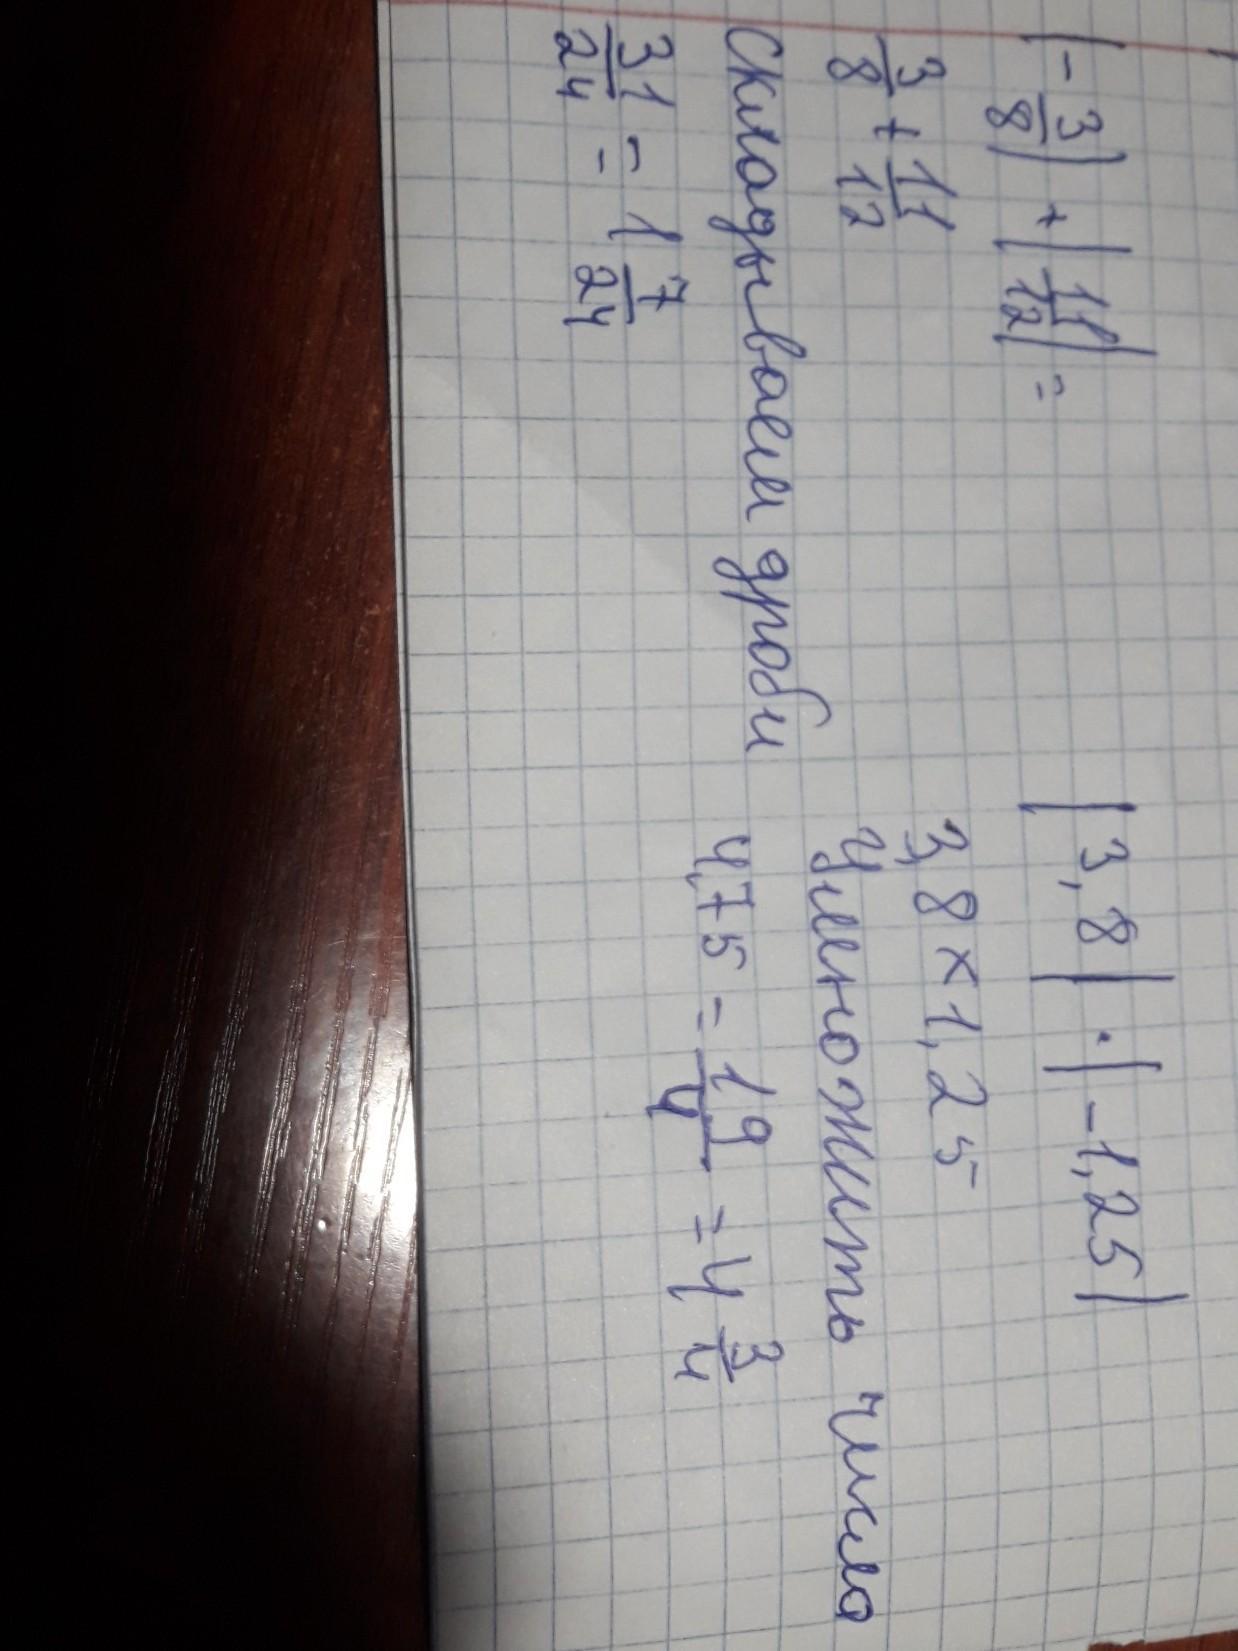 |-3/8| + |11/12| =
3/8 + 11/12
Складываем дроби
31/24 = 1 7/24
|3,8| · |-1,25|
3,8 × 1,25
Умножить число
4,75 = 19/4 = 4 3/4